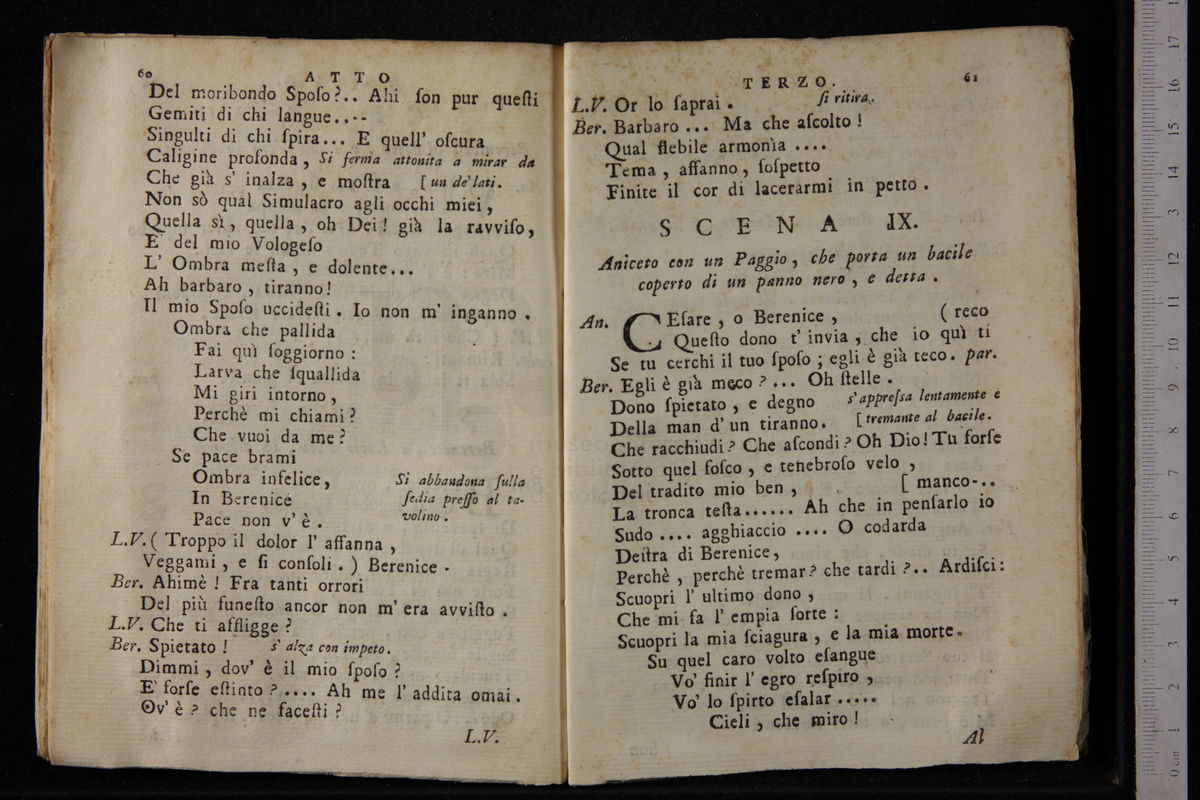 60
ATTO
Del moribondo Spoſo?.. Ahi ſon pur queſti
Gemiti di chi langue..--
Singulti di chi ſpira... E quell' oſcura
Caligine profonda, Si ferma attonita a mirar da
Che già s' inalza, e moſtra [un de' lati.
Non sò qual Simulacro agli occhi miei,
Quella sì, quella, oh Dei! già la ravviſo,
E' del mio Vologeſo
L' Ombra meſta, e dolente...
Ah barbaro, tiranno!
Il mio Spoſo uccideſti. Io non m' inganno.
Ombra che pallida
Fai quì ſoggiorno:
Larva che ſquallida
Mi giri intorno,
Perchè mi chiami?
Che vuoi da me?
Se pace brami
Ombra infelice, Si abbandona ſulla
In Berenice ſedia preſſo al ta-
Pace non v' è. volino.
L.V. (Troppo il dolor l' affanna,
Veggami, e ſi conſoli.) Berenice.
Ber. Ahimè! Fra tanti orrori
Del più funeſto ancor non m' era avviſto.
L.V. Che ti affligge?
Ber. Spietato! s' alza con impeto.
Dimmi, dov' è il mio ſpoſo?
E' forſe eſtinto?.... Ah me l' addita omai.
Ov' è? che ne faceſti?
L.V.
TERZO.
61
L.V. Or lo ſaprai. ſi ritira.
Ber. Barbaro... Ma che aſcolto!
Qual flebile armonìa....
Tema, affanno, ſoſpetto
Finite il cor di lacerarmi in petto.
SCENA IX.
Aniceto con un Paggio, che porta un bacile
coperto di un panno nero, e detta.
An. CEſare, o Berenice, (reco
Queſto dono t' invia, che io quì ti
Se tu cerchi il tuo ſpoſo; egli è già teco. par.
Ber. Egli è già meco?... Oh ſtelle.
Dono ſpietato, e degno s' appreſsa lentamente e
Della man d' un tiranno. [tremante al bacile.
Che racchiudi? Che aſcondi? Oh Dio! Tu forſe
Sotto quel foſco, e tenebroſo velo,
Del tradito mio ben, [manco-..
La tronca teſta...... Ah che in penſarlo io
Sudo.... agghiaccio.... O codarda
Deſtra di Berenice,
Perchè, perchè tremar? che tardi?.. Ardiſci:
Scuopri l' ultimo dono,
Che mi fa l' empia ſorte:
Scuopri la mia ſciagura, e la mia morte.
Su quel caro volto eſangue
Vo' finir l' egro reſpiro,
Vo' lo ſpirto eſalar.....
Cieli, che miro!
Al